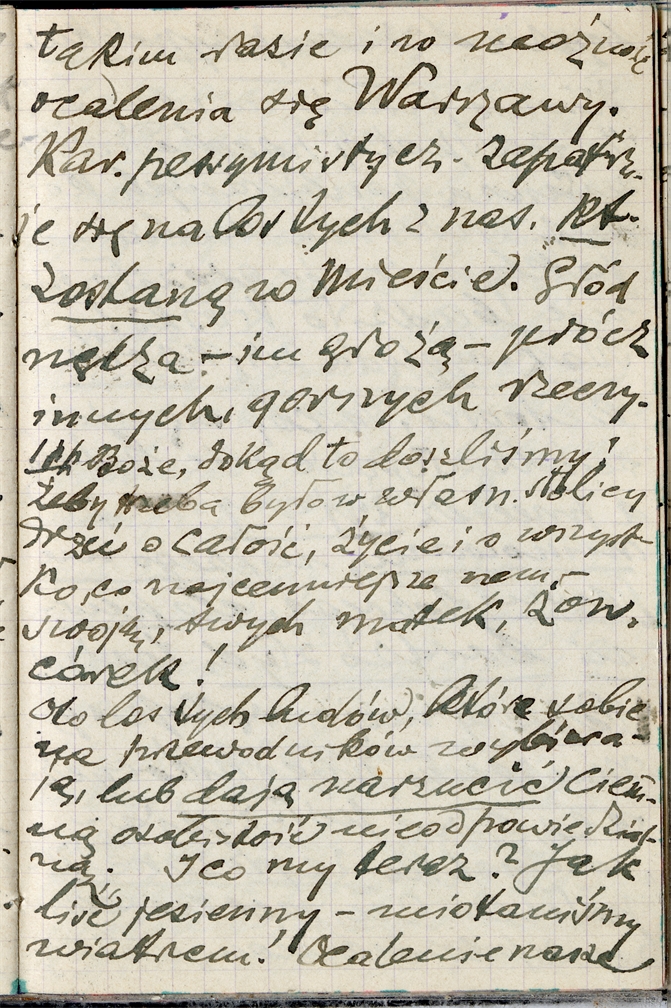 takim razie i w możność
ocalenia się Warszawy.
Kar. pesymistycz. zapatru-
je się na los tych z nas, kt.
zostaną w Mieście. Głód
nędza – im grożą – prócz
innych, gorszych rzeczy.
Boże, dokąd to doszliśmy!
Żeby trzeba było w własn. stolicy
drżeć o całość, życie i o wszyst-
ko, co najcenniejsze nam, –
swoją, i twych matek, żon,
córek!
Oto los tych ludów, które sobie
na przewodników wybiera-
ją, lub dają narzucić ciem-
ną osobistość nieodpowiedzial-
ną. I co my teraz? Jak
liść jesienny – miotaniśmy
wiatrem! Ocalenie nasze